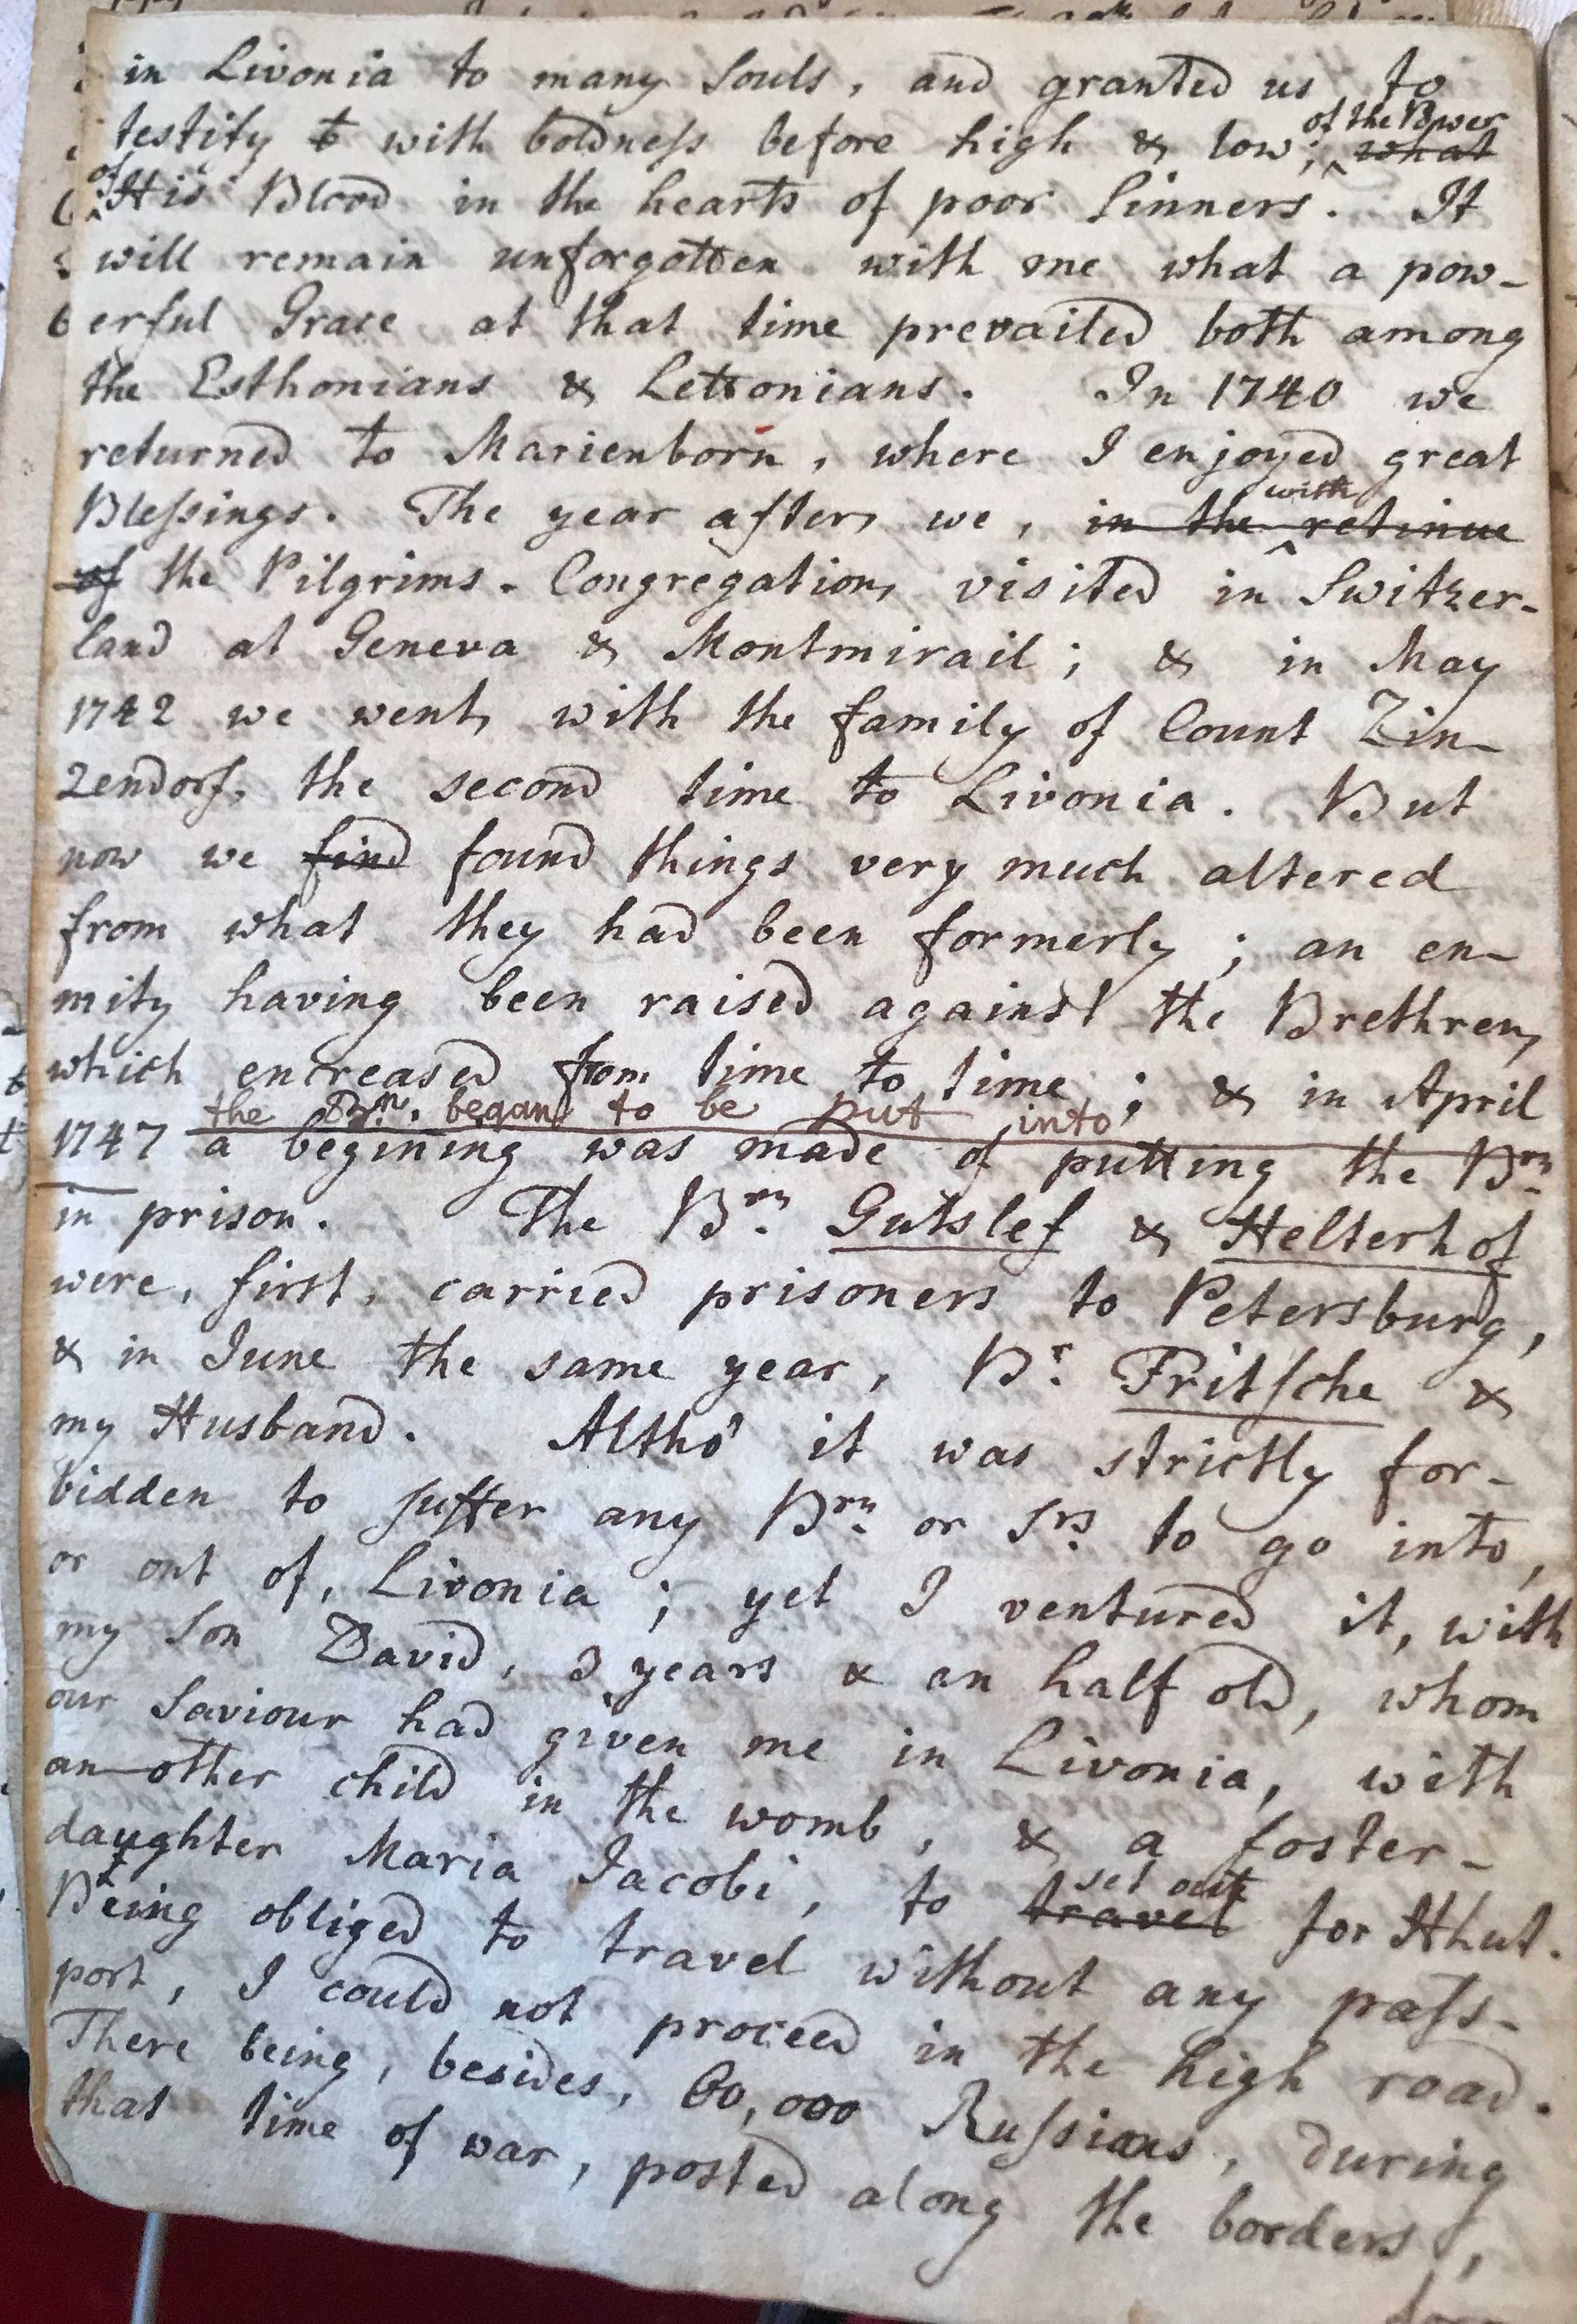 in Livonia to many Souls, and granted us to
testify t with boldness before high & low; of the Power what
of His Blood in the hearts of poor Sinners. It
will remain unforgotten with me what a pow-
erful Grace at that time prevailed both among
the Esthonians & Lettonians. In 1740 we
returned to Marienborn, where I enjoyed great
Blessings. The year after, we, in the retinue with
of the Pilgrims-Congregation, visited in Switzer-
land at Geneva & Montmirail; & in May
1742 we went, with the family of Count Zin-
zendorf, the second time to Livonia. But
now we find found things very much altered
from what they had been formerly; an en-
mity having been raised against the Brethren,
which encreased from time to time; & in April
the Brn. began to be put into
1747 a begining was made of putting the Brn.
in prison. The Brn. Gutslef & Helterhof
were, first, carried prisoners to Petersburg,
& in June the same year, Br. Fritsche &
my Husband. Altho' it was strictly for-
bidden to suffer any Brn. or Srs. to go into,
or out of, Livonia; yet I ventured it, with
my Son David, 3 years & an half old, whom
our Saviour had given me in Livonia, with
an-other child in the womb, & a foster-
daughter Maria Jacobi, to travel set out for Hhut.
Being obliged to travel without any pass-
port, I could not proceed in the high road.
There being, besides, 60,000 Russians, during
that time of war, posted along the borders,